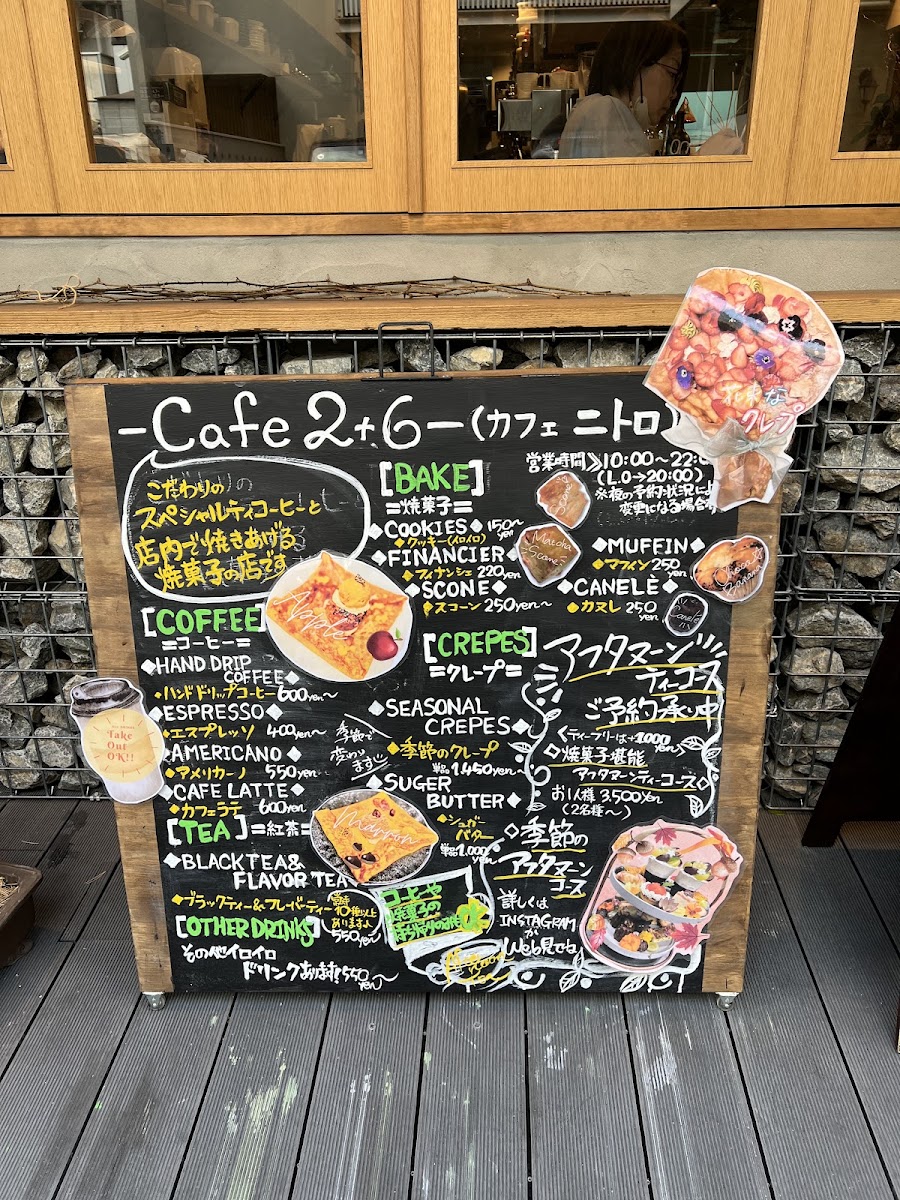 -Cafe 2+6-(カフェ ニトロ)
こだわりの
スペシャルティコーヒーと
店内で焼きあげる
焼菓子の店です
[BAKE]
=焼菓子=
COOKIES◆150~yen
◆クッキー(イロイロ)
◆FINANCIER◆
◆フィナンシェ 220yen
◆SCONE◆
◆スコーン 250yen~
営業時間》10:00~22:0
(L.O→20:00)
変更になる場合
◆MUFFIN◆
◆マフィン 250yen
◆CANELÈ◆
◆カヌレ 250yen
Matcha
Scone
Canele
な
クレープ
[COFFEE]
=コーヒー=
◆HAND DRIP
COFFEE◆
◆ハンドドリップコーヒー 600yen~
◆ESPRESSO◆
◆エスプレッソ 400yen~
◆AMERICANO◆
◆アメリカーノ 550yen
◆CAFE LATTE◆
◆カフェラテ 600yen
Take
Out
OK!!
[TEA]=紅茶=
◆BLACK TEA&
FLAVOR TEA
◆ブラックティー&フレーバーティー
10種以上
あります♪
550yen~
[OTHER DRINKS]
そのべイロイロ
ドリンクあります!550yen~
Apple
[CREPES]
=クレープ=
◆SEASONAL
CREPES◆
◆季節のクレープ
単品1,450yen~
季節で
変わります
◆SUGER
BUTTER◆
◆シュガー
バター
単品1,000yen~
Marron
コーヒーや
焼菓子の
お持ち帰りOK
アフタヌーン
ティーコース
ご予約承り中
<ティーフリーは+1,000yen>
◇焼菓子堪能
アフタヌーンティーコース◇
お1人様 3,500yen
(2名様~)
◇季節の
アフタヌーン
コース
詳しくは
INSTAGRAM
か
Web見てね